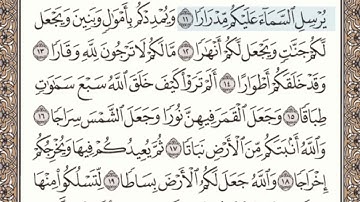 يُرْسِلِ ٱلسَّمَآءَ عَلَيْكُم مِّدْرَارًا ١١ وَيُمْدِدْكُم بِأَمْوَٰلٍ وَبَنِينَ وَيَجْعَل
لَّكُمْ جَنَّٰتٍ وَيَجْعَل لَّكُمْ أَنْهَٰرًا ١٢ مَّالَكُمْ لَا تَرْجُونَ لِلَّهِ وَقَارًا ١٣
وَقَدْ خَلَقَكُمْ أَطْوَارًا ١٤ أَلَمْ تَرَوْا۟ كَيْفَ خَلَقَ ٱللَّهُ سَبْعَ سَمَٰوَٰتٍ
طِبَاقًا ١٥ وَجَعَلَ ٱلْقَمَرَ فِيهِنَّ نُورًا وَجَعَلَ ٱلشَّمْسَ سِرَاجًا ١٦
وَٱللَّهُ أَنۢبَتَكُم مِّنَ ٱلْأَرْضِ نَبَاتًا ١٧ ثُمَّ يُعِيدُكُمْ فِيهَا وَيُخْرِجُكُمْ
إِخْرَاجًا ١٨ وَٱللَّهُ جَعَلَ لَكُمُ ٱلْأَرْضَ بِسَاطًا ١٩ لِّتَسْلُكُوا۟ مِنْهَا